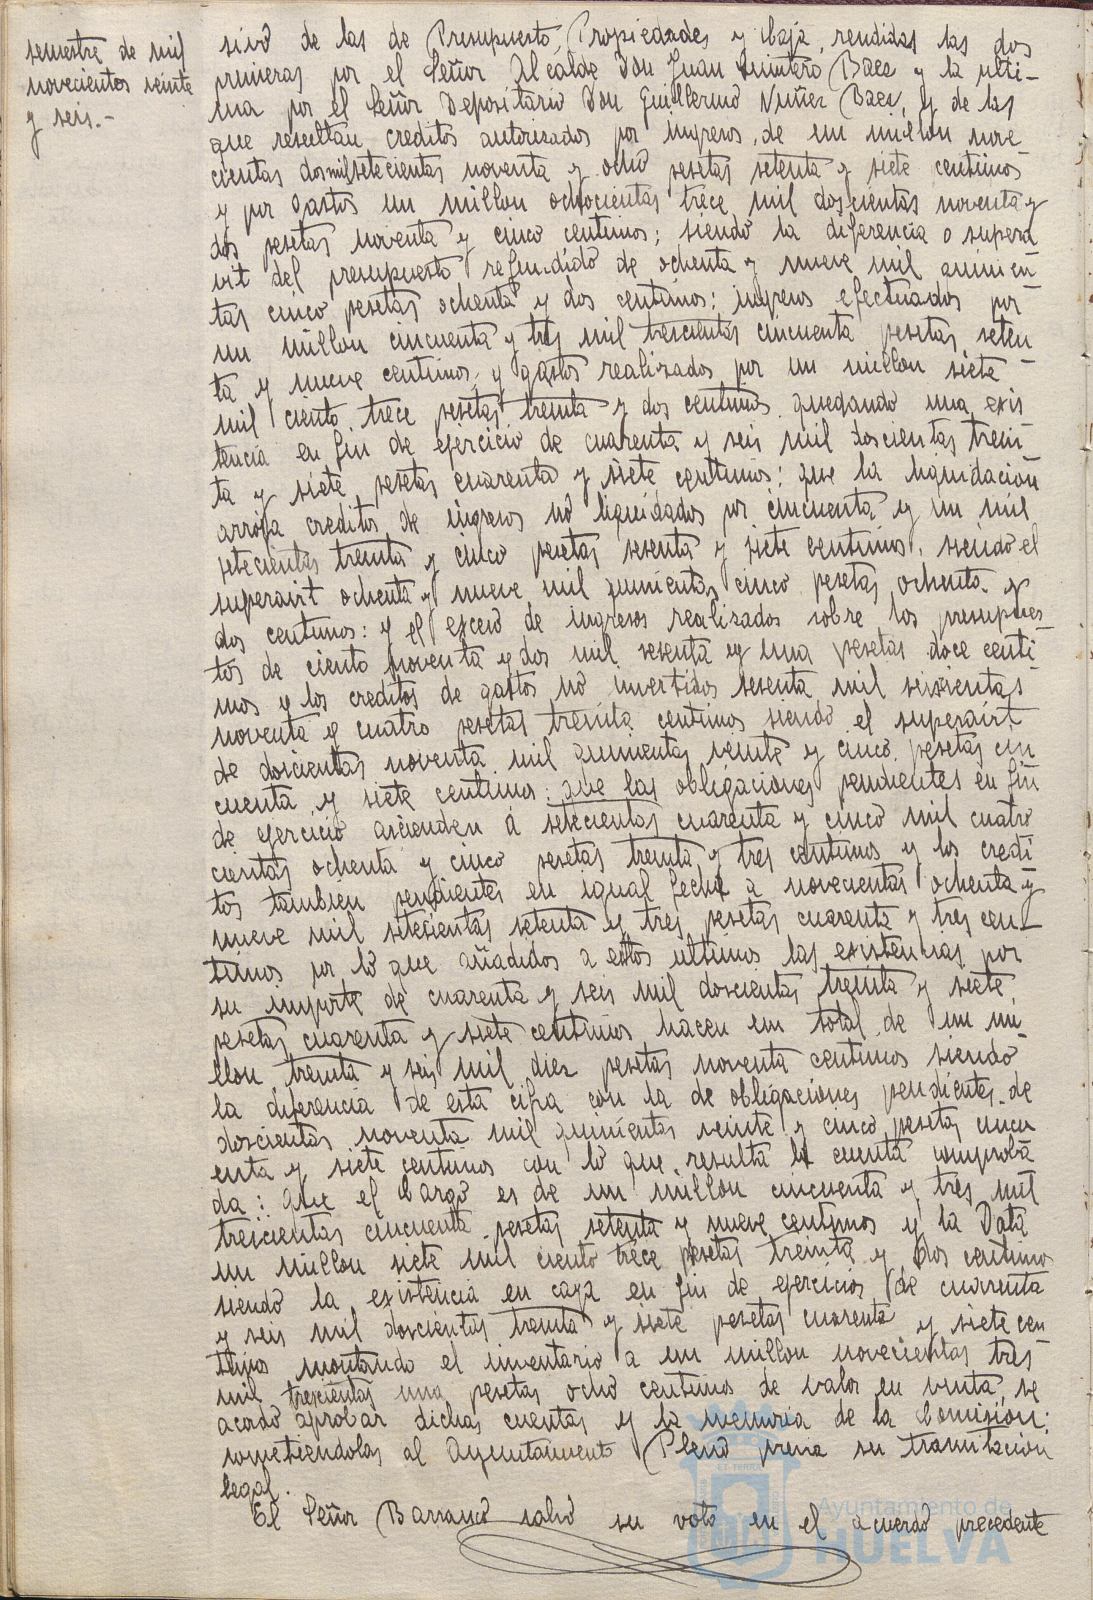 semestre de mil
novecientos veinte
y seis.-
sivo de las de Presupuesto, Propiedades y Caja, rendidas las dos
primeras por el Señor Alcalde Don Juan Quintero Baez y la ulti-
ma por el Señor Depositario Don Guillermo Nuñez Baez, y de las
que resultan creditos autorizados por ingresos, de un millon nove
cientas dosmilsetecientas noventa y ocho pesetas setenta y siete centimos
y por gastos un millon ochocientas trece mil doscientas noventa y
dos pesetas noventa y cinco centimos; siendo la diferencia o supera
vit del presupuesto refundido de ochenta y nueve mil quinien
tas cinco pesetas ochenta y dos centimos: ingresos efectuados por
un millon cincuenta y tres mil trescientas cincuenta pesetas seten
ta y nueve centimos, y gastos realizados por un millon siete
mil ciento trece pesetas treinta y dos centimos quedando una exis
tencia en fin de ejercicio de cuarenta y seis mil doscientas trein
ta y siete pesetas cuarenta y siete centimos: que la liquidacion
arroja creditos de ingresos no liquidados por cincuenta y un mil
setecientas treinta y cinco pesetas sesenta y siete centimos, siendo el
superavit ochenta y nueve mil quinientas cinco pesetas ochenta y
dos centimos: y el exceso de ingresos realizados sobre los presupues-
tos de ciento noventa y dos mil sesenta y una pesetas doce centi-
mos y los creditos de gastos no invertidos sesenta mil seiscientas
noventa y cuatro pesetas treinta centimos siendo el superavit
de doscientas noventa mil quinientas veinte y cinco pesetas cin
cuenta y siete centimos: que las obligaciones pendientes en fin
de ejercicio ascienden á setecientas cuarenta y cinco mil cuatro
cientas ochenta y cinco pesetas treinta y tres centimos y los credi
tos tambien pendientes en igual fecha a novecientas ochenta y
nueve mil setecientas setenta y tres pesetas cuarenta y tres cen-
timos por lo que añadidos a estos ultimos las existencias por
su importe de cuarenta y seis mil doscientas treinta y siete
pesetas cuarenta y siete centimos hacen un total de un mi-
llon treinta y seis mil diez pesetas noventa centimos siendo
la diferencia de esta cifra con la de obligaciones pendientes de
doscientas noventa mil quinientas veinte y cinco pesetas cincu
enta y siete centimos con lo que resulta la cuenta comproba
da: Que el Cargo es de un millon cincuenta y tres mil
trescientas cincuenta pesetas setenta y nueve centimos y la Data
un millon siete mil ciento trece pesetas treinta y dos centimos
siendo la existencia en caja en fin de ejercicio de cuarenta
y seis mil doscientas treinta y siete pesetas cuarenta y siete cen
timos montando el inventario a un millon novecientas tres
mil trescientas una pesetas ocho centimos de valor en venta, se
acordó aprobar dichas cuentas y la memoria de la Comisión:
sometiendolas al Ayuntamiento Pleno previa su tramitacion
legal.
El Señor Barranco salvó su voto en el acuerdo precedente
Ayuntamiento de
HUELVA